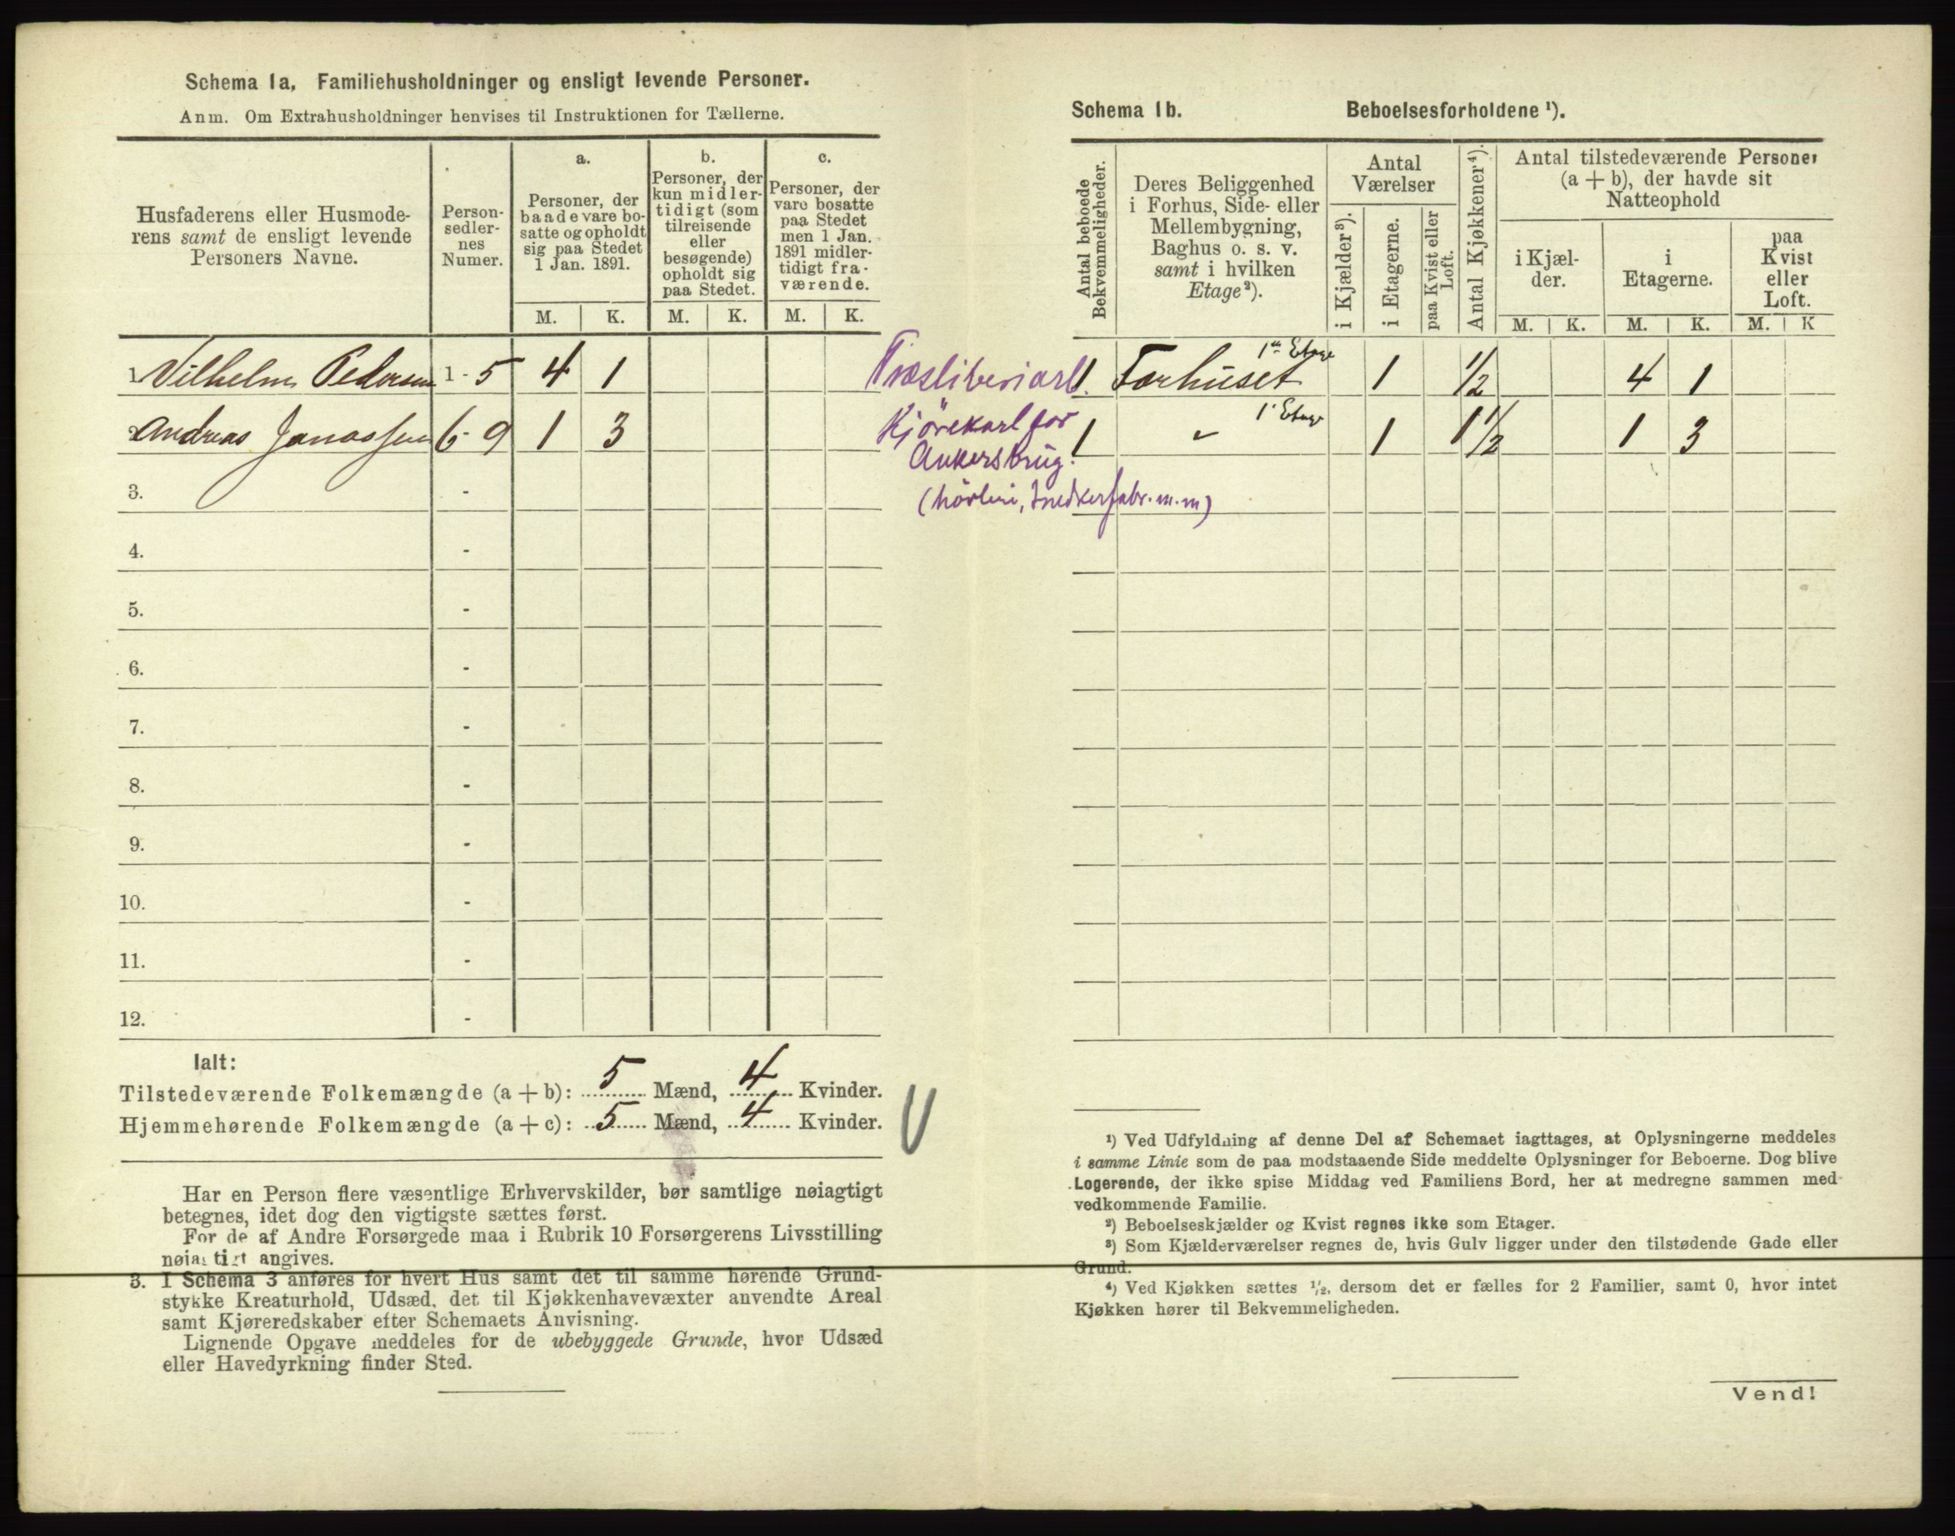 Schema 1a, Familiehusholdninger og ensligt levende Personer.
Anm. Om Extrahusholdninger henvises til Instruktionen for Tællerne.
Husfaderens eller Husmode-
rens samt de ensligt levende
Personers Navne.
Person-
sedler-
nes
Numer.
a.
Personer, der
baade vare bo-
satte og opholdt
sig paa Stedet
1 Jan. 1891.
b.
Personer, der
kun midler-
tidigt (som
tilreisende
eller
besøgende)
opholdt sig
paa Stedet.
c.
Personer, der
vare bosatte
paa Stedet
men 1 Jan.
1891 midler-
tidigt fra-
værende.
M. K. M. K. M. K.
1. Vilhelm Pedersen 1 - 5 4 1
2. Andreas Jonassen 6 - 9 1 3
3. -
4. -
5. -
6. -
7. -
8. -
9. -
10. -
11. -
12. -
Ialt:
Tilstedeværende Folkemængde (a + b): 5 Mænd, 4 Kvinder.
Hjemmehørende Folkemængde (a + c): 5 Mænd, 4 Kvinder.
Har en Person flere væsentlige Erhvervskilder, bør samtlige nøiagtigt
betegnes, idet dog den vigtigste sættes først.
For de af Andre Forsørgede maa i Rubrik 10 Forsørgerens Livsstilling
nøiagtigt angives.
3. I Schema 3 anføres for hvert Hus samt det til samme hørende Grund-
stykke Kreaturhold, Udsæd, det til Kjøkkenhavevæxter anvendte Areal
samt Kjøreredskaber efter Schemaets Anvisning.
Lignende Opgave meddeles for de ubebyggede Grunde, hvor Udsæd
eller Havedyrkning finder Sted.
Schema 1b. Beboelsesforholdene ¹).
Antal beboede
Bekvemmeligheder.
Deres Beliggenhed
i Forhus, Side- eller
Mellembygning,
Baghus o. s. v.
samt i hvilken
Etage²).
Antal
Værelser
i Kjælder³).
i Etagerne.
paa Kvist eller
Loft.
Antal Kjøkkener⁴).
Antal tilstedeværende Personer
(a + b), der havde sit
Natteophold
i Kjæl-
der.
i
Etagerne.
paa
Kvist
eller
Loft.
M. K. M. K. M. K
1 Forhuset 1ste Etage 1 1/2 4 1
Kjørekarl for
Ankersbrug.
1 " 1' Etage 1 1/2 1 3
¹) Ved Udfyldning af denne Del af Schemaet iagttages, at Oplysningerne meddeles
i samme Linie som de paa modstaaende Side meddelte Oplysninger for Beboerne. Dog blive
Logerende, der ikke spise Middag ved Familiens Bord, her at medregne sammen med
vedkommende Familie.
²) Beboelseskjælder og Kvist regnes ikke som Etager.
³) Som Kjælderværelser regnes de, hvis Gulv ligger under den tilstødende Gade eller
Grund.
⁴) Ved Kjøkken sættes ¹/₂, dersom det er fælles for 2 Familier, samt 0, hvor intet
Kjøkken hører til Bekvemmeligheden.
Vend!